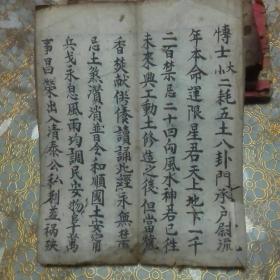 博士大小二耗五土八卦門承户尉流
年本命運限星君天上地下一千
二百禁忌二十四向風水神君已往
未來興工動土修造之後但當
香焚献供儀讀誦此經永無
忌土煞潛消普令和順國土安甯
兵戈永息風雨均調民安物阜萬
事昌榮出入清泰公私利益禍殃